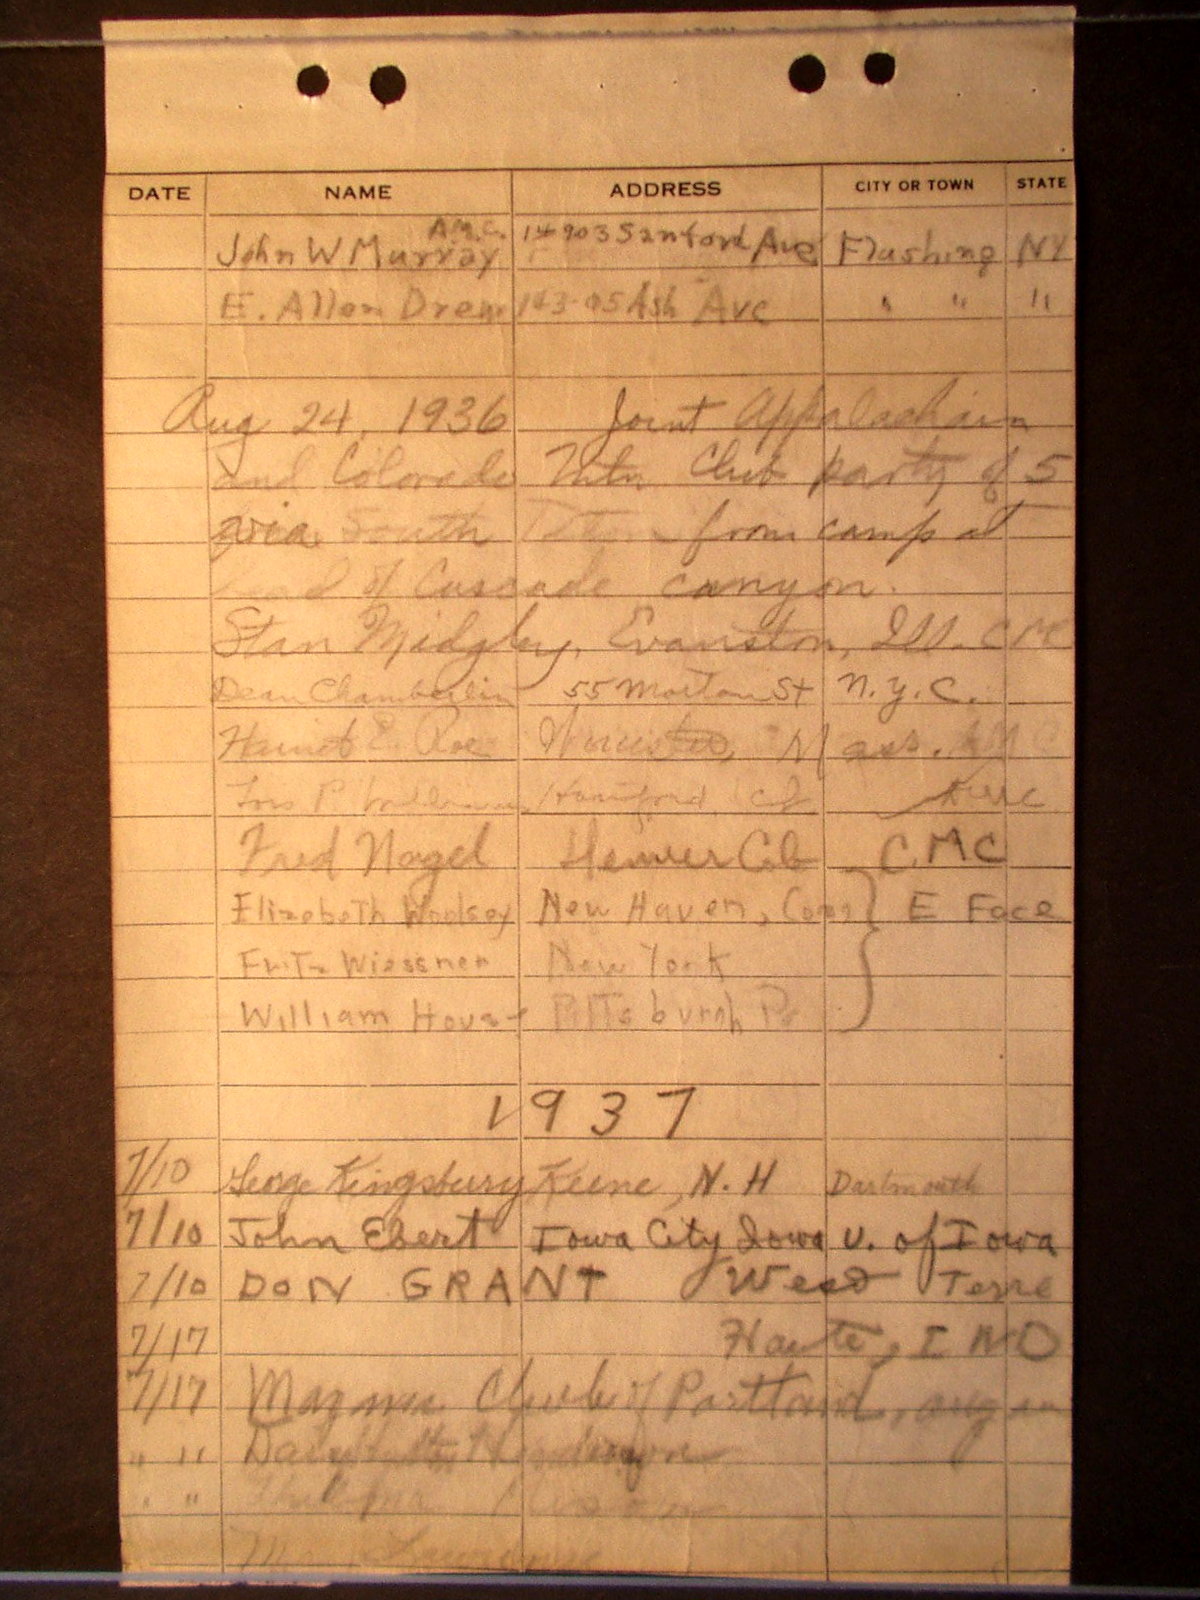 DATE NAME ADDRESS CITY OR TOWN STATE
A.M.C.
John W Murray 14-903 Sanford Ave Flushing NY
E. Allen Drew 143-05 Ash Ave " " "
Aug 24, 1936 Joint Appalachain
and Colorado Mtn Club party of 5
via South Teton from camp at
head of Cascade canyon.
Stan Midgley, Evanston, Ill. CMC
Dean Chamberlin 55 Morton St N.Y.C.
Harriet E. Mass.
Lois P. Hartford
Fred Nagel Denver Col CMC
Elizabeth Woolsey New Haven, Conn } E Face
Fritz Wiessner New York
William House Pittsburgh Pa
1937
7/10 George Kingsbury Keene, N.H Dartmouth
7/10 John Ebert Iowa City Iowa U. of Iowa
7/10 DON GRANT West Terre
7/17 Haute, IND
7/17 Club of Portland,
" "
" "